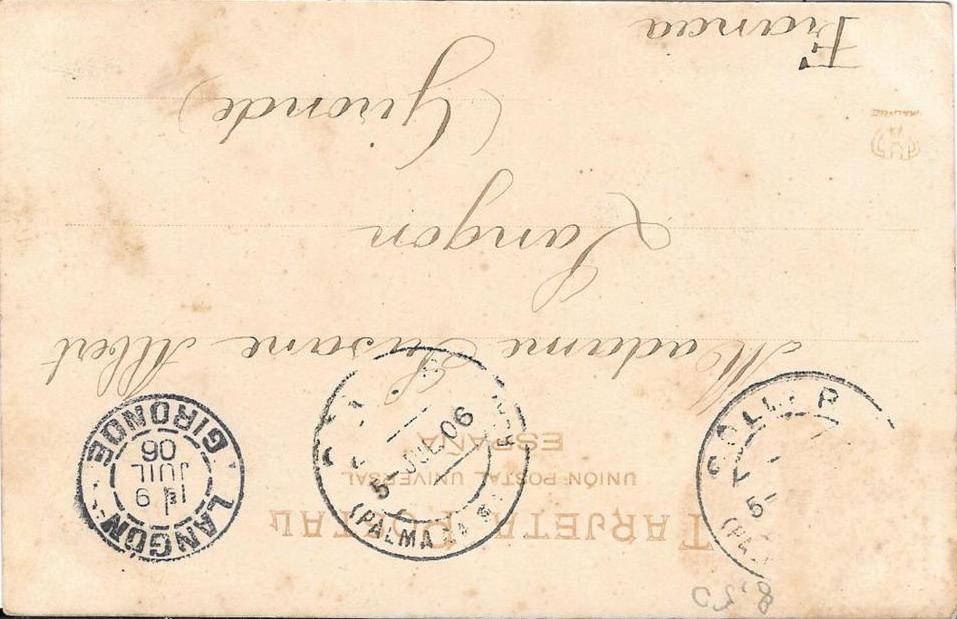 TARJETA POSTAL
UNIÓN POSTAL UNIVERSAL
ESPAÑA
Madame Susane Albert
Langon
(Gironde)
Francia
SOLLER
5
(PA
5 JUL 06
(PALMA
LANGON
9
JUIL
06
GIRONDE